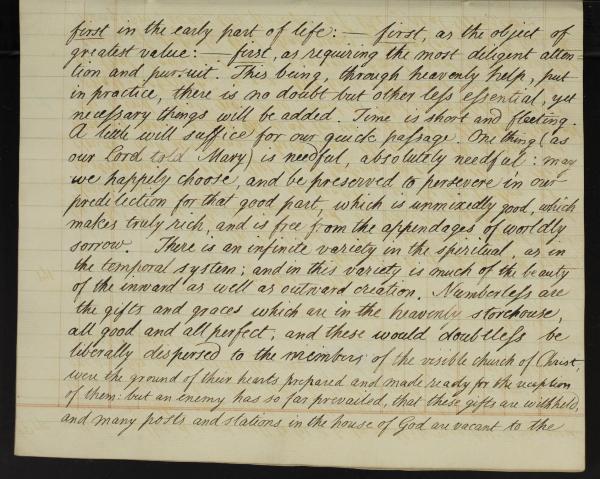 first in the early part of life: — first, as the object of
greatest value: — first, as requiring the most diligent atten-
tion and pursuit. This being, through heavenly help, put
in practice, there is no doubt but other less essential, yet
necessary things will be added. Time is short and fleeting.
A little will suffice for our quick passage. One thing (as
our Lord told Mary) is needful, absolutely needful: may
we happily choose, and be preserved to persevere in our
predilection for that good part, which is unmixedly good, which
makes truly rich, and is free from the appendages of worldly
sorrow. There is an infinite variety in the spiritual, as in
the temporal system; and in this variety is much of the beauty
of the inward as well as outward creation. Numberless are
the gifts and graces which are in the heavenly storehouse,
all good and all perfect, and these would doubtless be
liberally dispersed to the members of the visible church of Christ,
were the ground of their hearts prepared and made ready for the reception
of them: but an enemy has so far prevailed, that these gifts are withheld,
and many posts and stations in the house of God are vacant to the